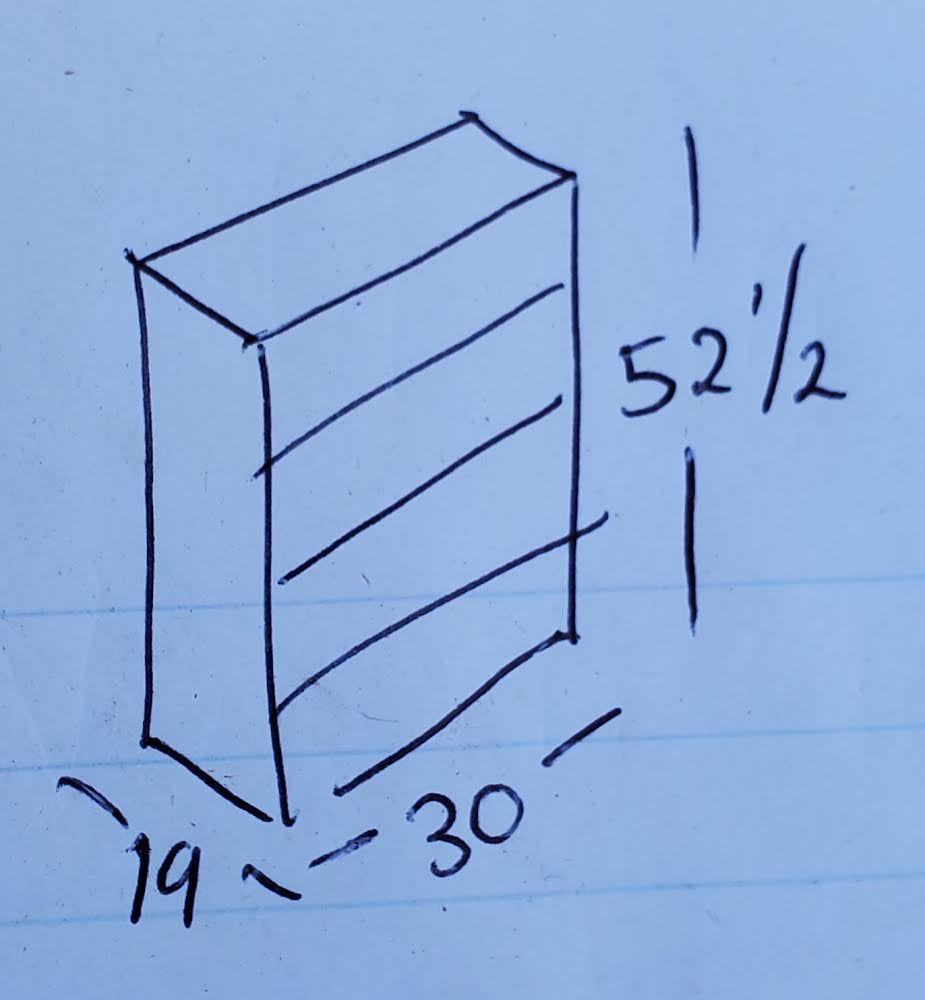 52 1/2
30
19